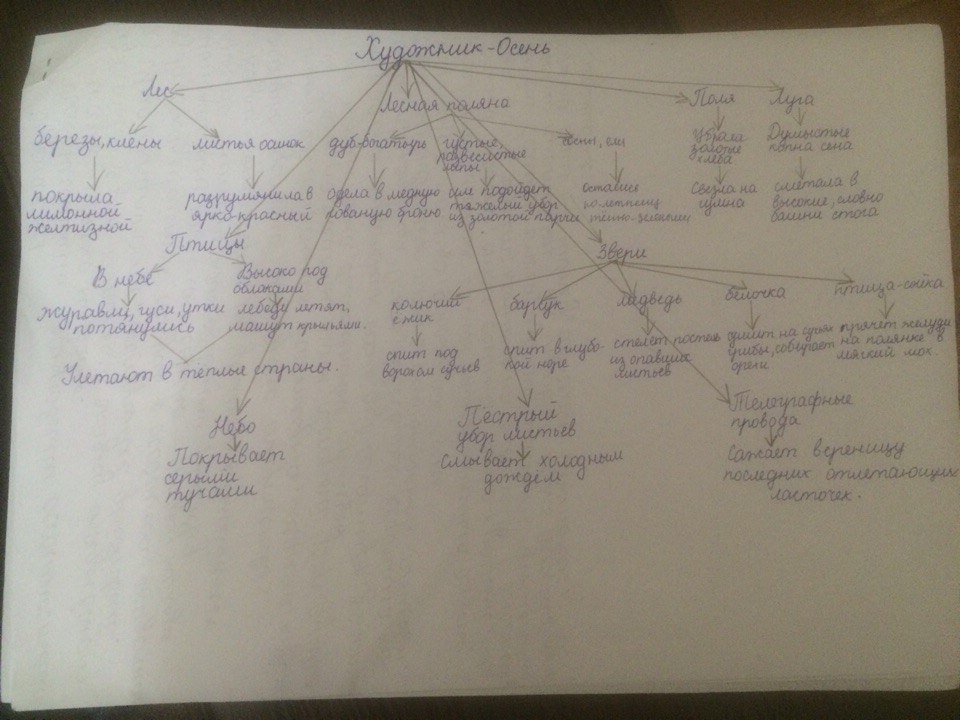 Художник-Осень
Лес
Лесная поляна
Поля
Луга
березы, клены
листья осинок
дуб-богатырь
густые,
развесистые
липы
сосны, ели
Убрала
золотые
хлеба
Душистые
копна сена
покрыла
лимонной
желтизной
разрумянила в
ярко-красный
одела в медную
кованую броню
им подойдет
тяжелый убор
из золотой парчи
остались
темно-зелеными
Свезла на
гумна
сметала в
высокие, словно
башни стога
Птицы
Звери
В небе
Высоко под
облаками
журавли, гуси, утки
потянулись
лебеди летят,
машут крыльями.
Улетают в теплые страны.
колючий
ежик
барсук
медведь
белочка
птица-сойка
спит под
ворохом сучьев
спит в глубо-
кой норе
стелет постель
из опавших
листьев
сушит на сучьях
грибы, собирает
орехи
прячет желуди
на полянке в
мягкий мох
Небо
Покрывает
серыми
тучами
Пёстрый
убор листьев
Смывает холодным
дождём
Телеграфные
провода
Сажает вереницу
последних отлетающих
ласточек.